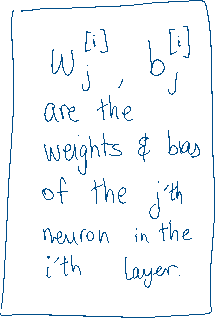 w_j^[i], b_j^[i]
are the
weights & bias
of the j'th
neuron in the
i'th layer.